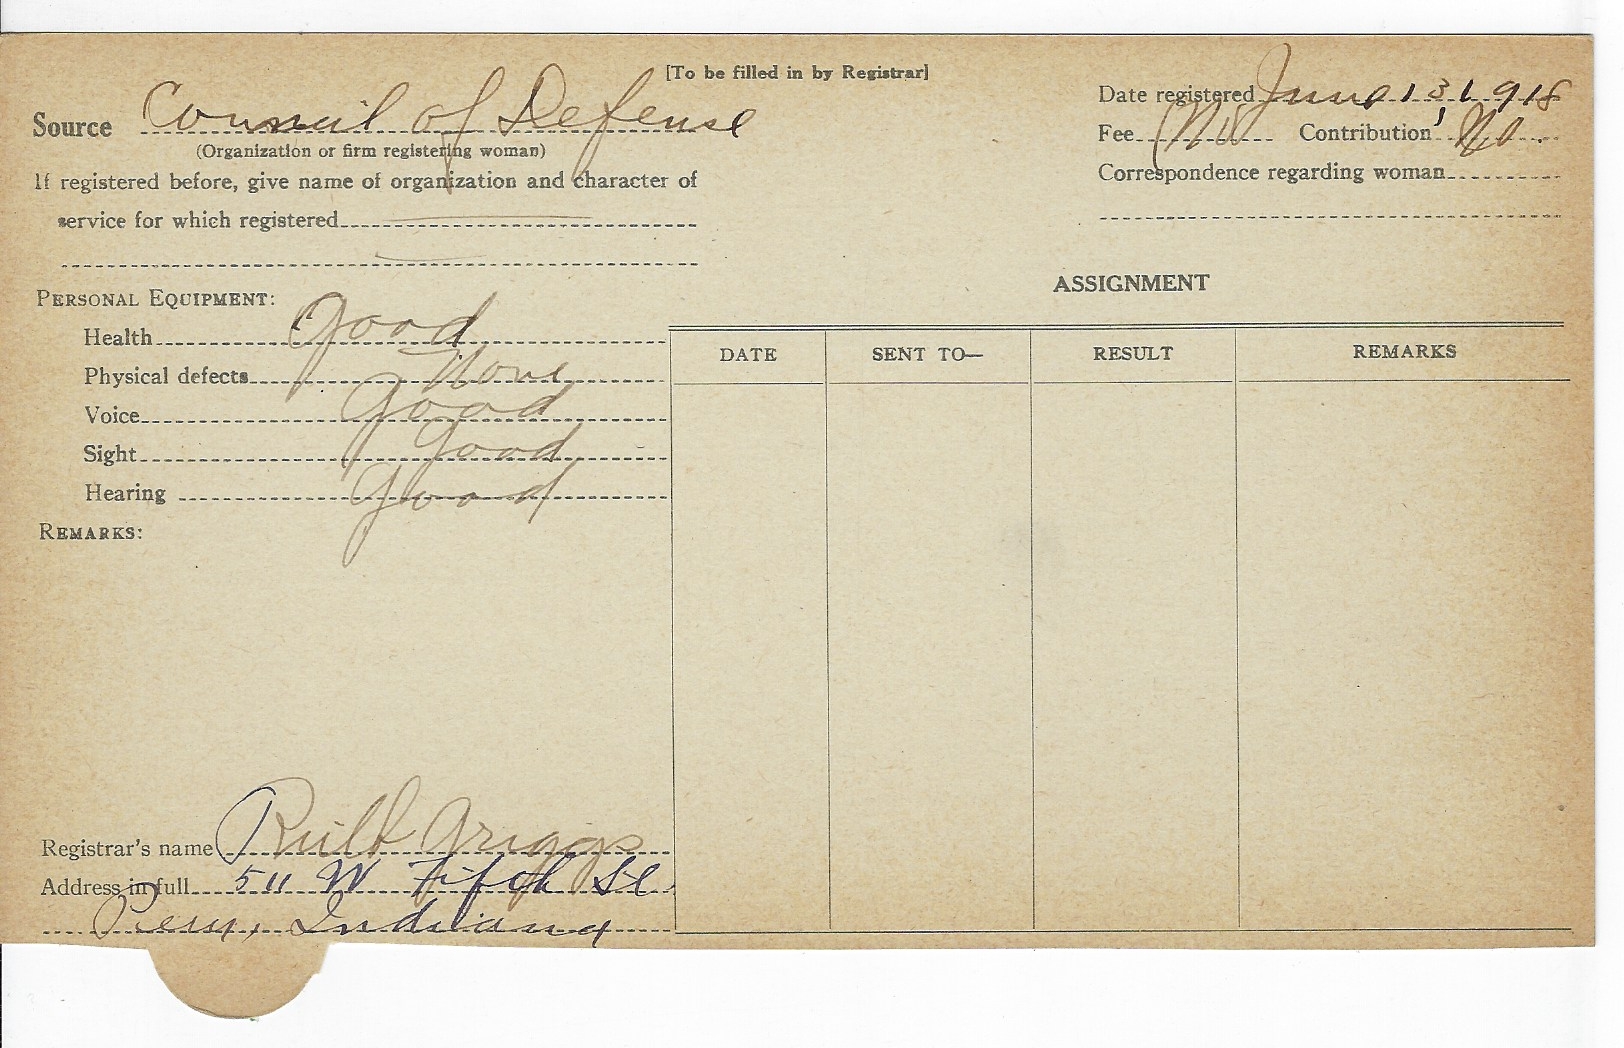 [To be filled in by Registrar]
Source Council of Defense
(Organization or firm registering woman)
If registered before, give name of organization and character of
service for which registered
Date registered June 13, 1918
Fee No Contribution No.
Correspondence regarding woman
PERSONAL EQUIPMENT:
Health Good
Physical defects None
Voice Good
Sight Good
Hearing Good
REMARKS:
ASSIGNMENT
DATE SENT TO— RESULT REMARKS
Registrar's name Ruth Griggs
Address in full 511 W Fifth St
Peru, Indiana